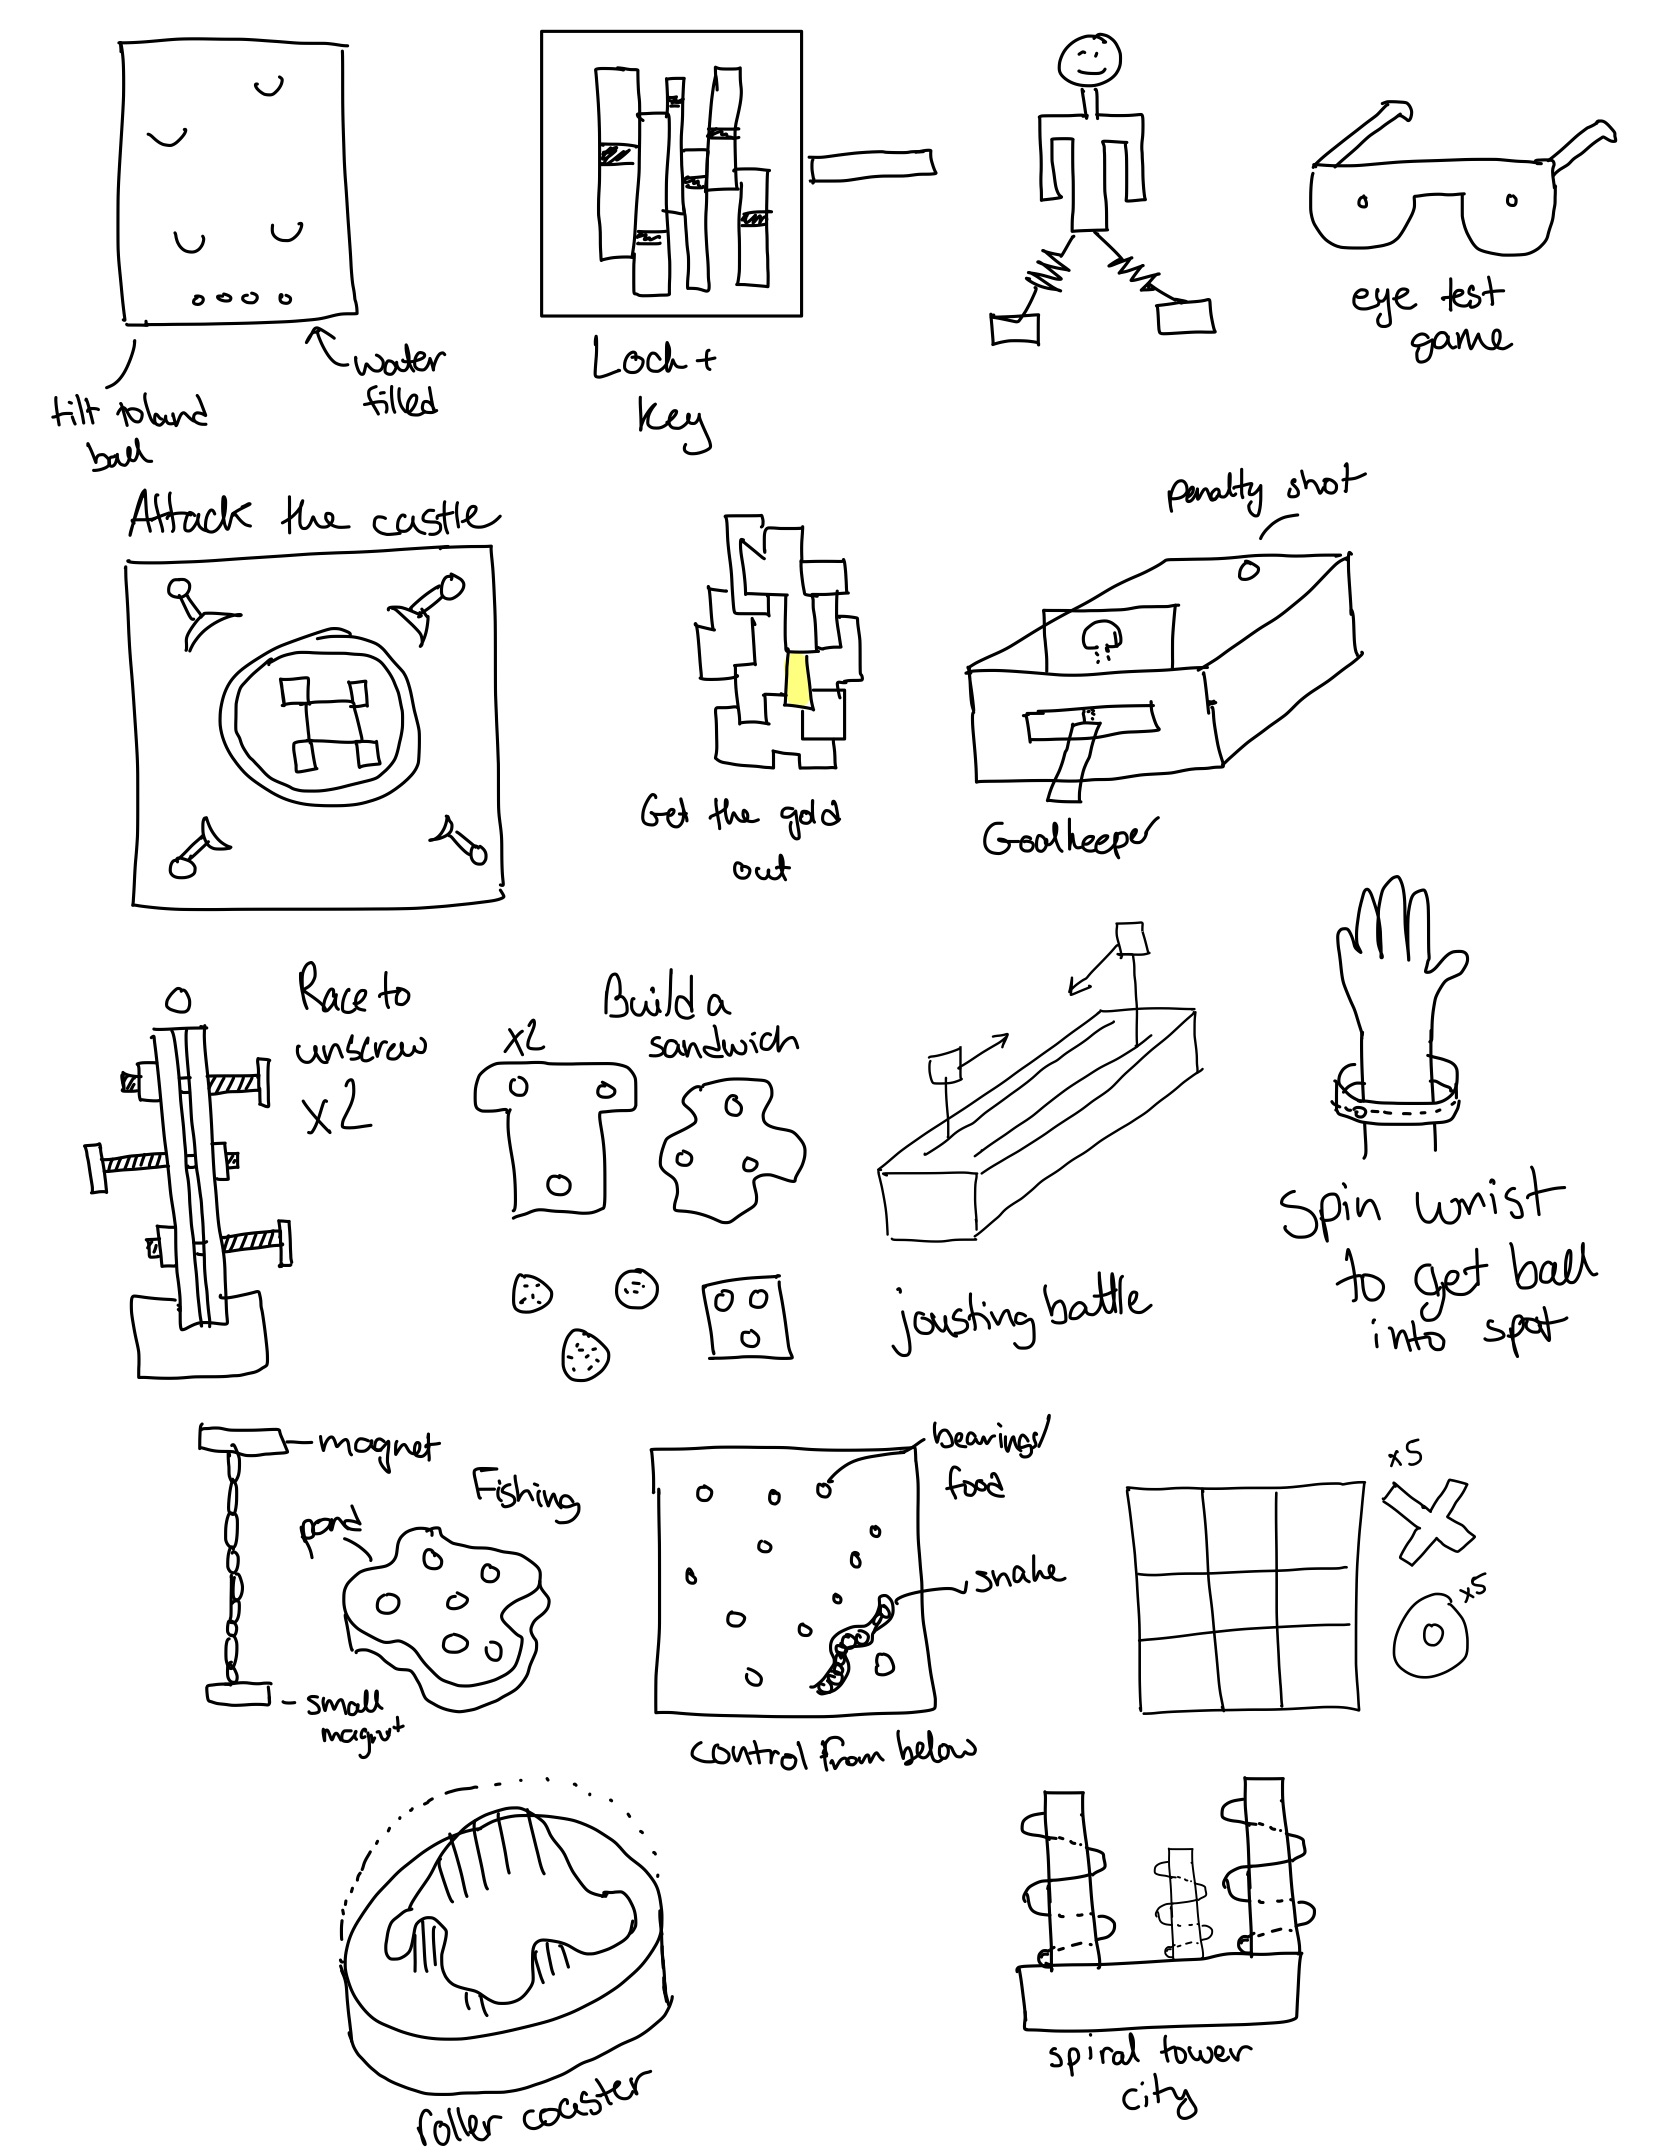 tilt to land
ball
water
filled
Lock +
key
eye test
game
Attack the castle
Get the gold
out
penalty shot
Goalkeeper
Race to
unscrew
x2
x2
Build a
sandwich
jousting battle
Spin wrist
to get ball
into spot
magnet
small
magnet
pond
Fishing
bearings/
food
snake
control from below
x5
x5
roller coaster
spiral tower
city